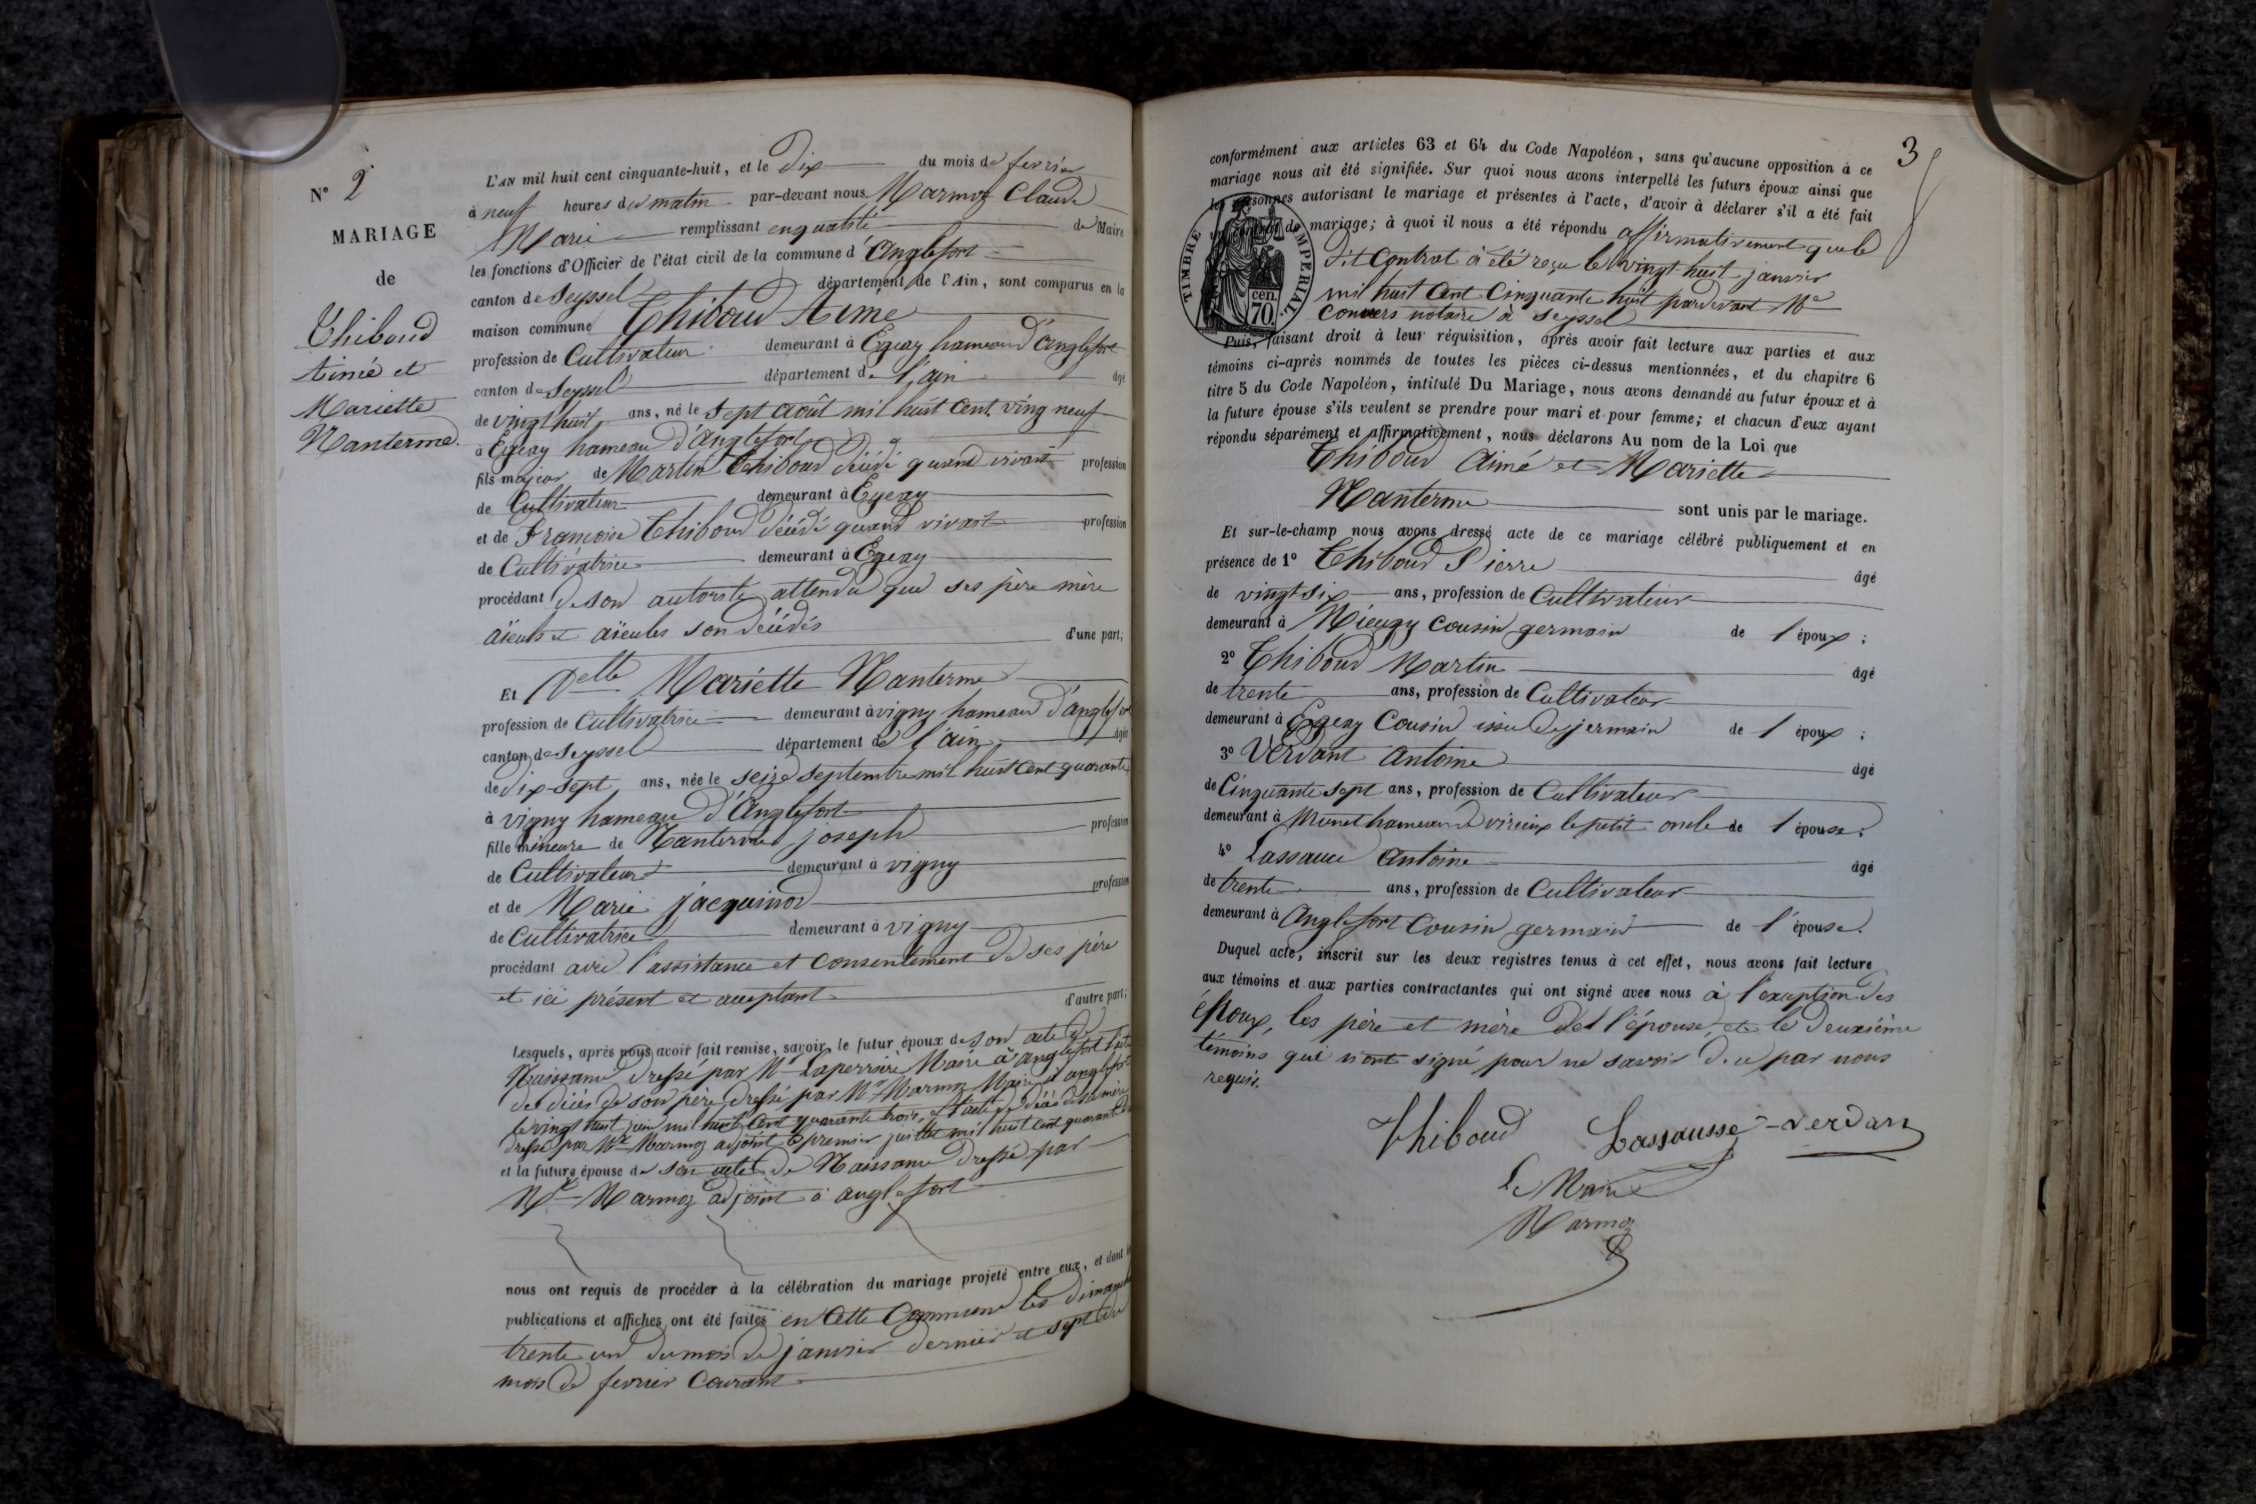 N° 2
MARIAGE
de
Thiboud
Aimé et
Mariette
Nanterme.
L'AN mil huit cent cinquante-huit, et le dix du mois de fevrier
à neuf heures du matin par-devant nous Marmoz Claude
Marie remplissant en qualité de Maire
les fonctions d'Officier de l'état civil de la commune d'Anglefort
canton de Seyssel département de l'Ain, sont comparus en la
maison commune Thiboud Aimé
profession de Cultivateur demeurant à Egieay hameau d'Anglefort
canton de Seyssel département de l'ain âgé
de vingt huit ans, né le sept août mil huit cent ving neuf
à hameau d'Anglefort
fils majeur de Martin Thiboud décédé quand vivait profession
de Cultivateur demeurant à
et de Françoise Thiboud décédé quand vivait profession
de Cultivatrice demeurant à
procédant de son autorité attendu que ses père mère
aïeuls et aïeules son décédés d'une part;
Et Delle Mariette Nanterme
profession de Cultivatrice demeurant à vigny hameau d'anglefort
canton de Seyssel département de l'ain âgée
de dix-sept ans, née le seize septembre mil huit cent quarante
à vigny hameau d'Anglefort
fille mineure de Nanterme joseph profession
de Cultivateur demeurant à vigny
et de Marie jacquinod profession
de Cultivatrice demeurant à vigny
procédant avec l'assistance et consentement de ses père
et ici présent et acceptant d'autre part;
Lesquels, après nous avoir fait remise, savoir, le futur époux de son acte de
Naissance dressé par Mr Laperrière Maire à anglefort
de décès de son père dressé par Mr Marmoz Maire à anglefort
le vingt huit juin mil huit cent quarante trois, et l'acte de décès de sa mère
dressé par Mr Marmoz adjoint le premier juillet mil huit cent quarante
et la future épouse de son acte de Naissance dressé par
Mr Marmoz adjoint à anglefort
nous ont requis de procéder à la célébration du mariage projeté entre eux, et dont les
publications et affiches ont été faites en cette Commune les dimanches
trente un du mois de janvier dernier et sept du
mois de fevrier Courant
3
conformément aux articles 63 et 64 du Code Napoléon, sans qu'aucune opposition à ce
mariage nous ait été signifiée. Sur quoi nous avons interpellé les futurs époux ainsi que
les personnes autorisant le mariage et présentes à l'acte, d'avoir à déclarer s'il a été fait
un contrat de mariage; à quoi il nous a été répondu affirmativement que le
TIMBRE IMPERIAL
70 cen.
dit Contrat à été reçu le vingt huit janvier
mil huit Cent Cinquante huit pardevant Me
Convers notaire à Seyssel
Puis, faisant droit à leur réquisition, après avoir fait lecture aux parties et aux
témoins ci-après nommés de toutes les pièces ci-dessus mentionnées, et du chapitre 6
titre 5 du Code Napoléon, intitulé Du Mariage, nous avons demandé au futur époux et à
la future épouse s'ils veulent se prendre pour mari et pour femme; et chacun d'eux ayant
répondu séparément et affirmativement, nous déclarons Au nom de la Loi que
Thiboud Aimé et Mariette
Nanterme sont unis par le mariage.
Et sur-le-champ nous avons dressé acte de ce mariage célébré publiquement et en
présence de 1° Thiboud Pierre âgé
de vingt six ans, profession de Cultivateur
demeurant à Mieugy Cousin germain de l'époux;
2° Thiboud Martin âgé
de trente ans, profession de Cultivateur
demeurant à Cousin issu de jermain de l'époux;
3° Verdant Antoine âgé
de Cinquante sept ans, profession de Cultivateur
demeurant à Munet hameau de virieux le petit oncle de l'épouse;
4° Lassauce Antoine âgé
de trente ans, profession de Cultivateur
demeurant à Anglefort Cousin germain de l'épouse.
Duquel acte, inscrit sur les deux registres tenus à cet effet, nous avons fait lecture
aux témoins et aux parties contractantes qui ont signé avec nous à l'exception des
époux, les père et mère de l'épouse, et le deuxième
témoins qui n'ont signé pour ne savoir de ce par nous
requis.
Thiboud Lassausse Verdan
Le Maire
Marmoz